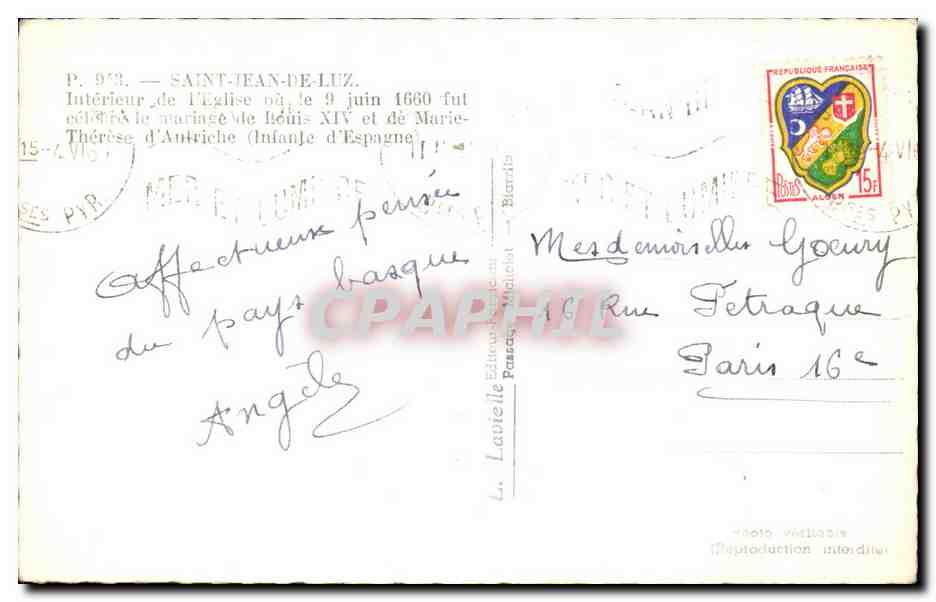 P. 943. — SAINT-JEAN-DE-LUZ.
Intérieur de l'Eglise où le 9 juin 1660 fut
célébré le mariage de Louis XIV et de Marie-
Thérèse d'Autriche (Infante d'Espagne)
Affectueuse pensée
du pays basque
Angèle
REPUBLIQUE FRANÇAISE
POSTES
15F
ALGER
15-4 VI
PYR
MER ET LUMIERE
Mesdemoiselles Goeury
16 Rue Petraque
Paris 16e
L. Lavielle
Passage Michelot — Biarritz
Photo véritable
(Reproduction interdite)
CPAPHIL